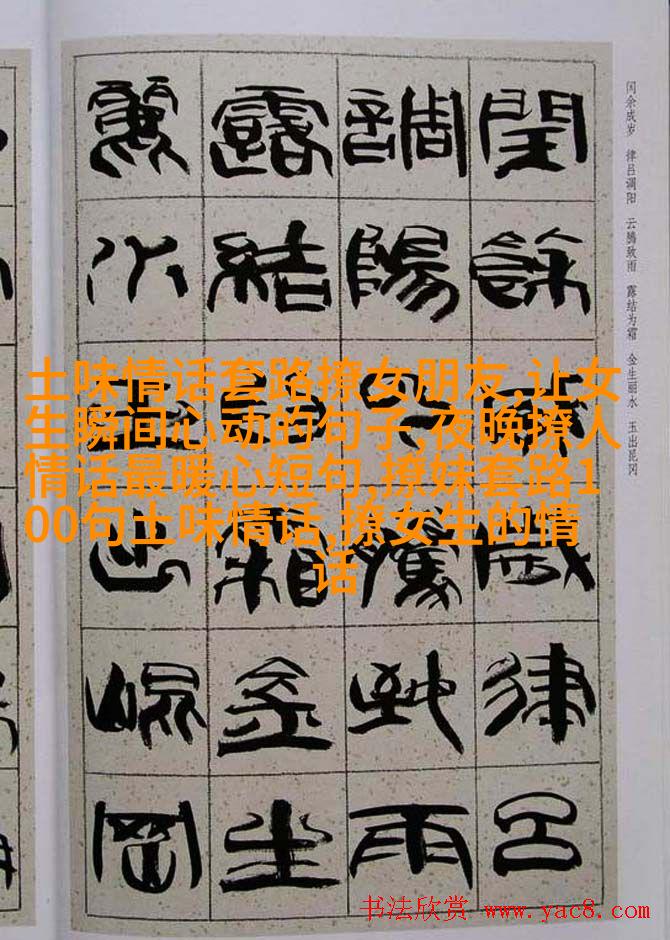 闰余成岁 律吕调阳 云腾致雨 露结为霜 金生丽水 玉出昆冈
閏餘成歲律呂
調陽云騰致雨
露結為霜金生
麗水玉出崐岡
土味情话套路撩女朋友,让女
生瞬间心动的句子,夜晚撩人
情话最暖心短句,撩妹套路1
00句土味情话,撩女生的情
话
书法欣赏 www.yac8.com